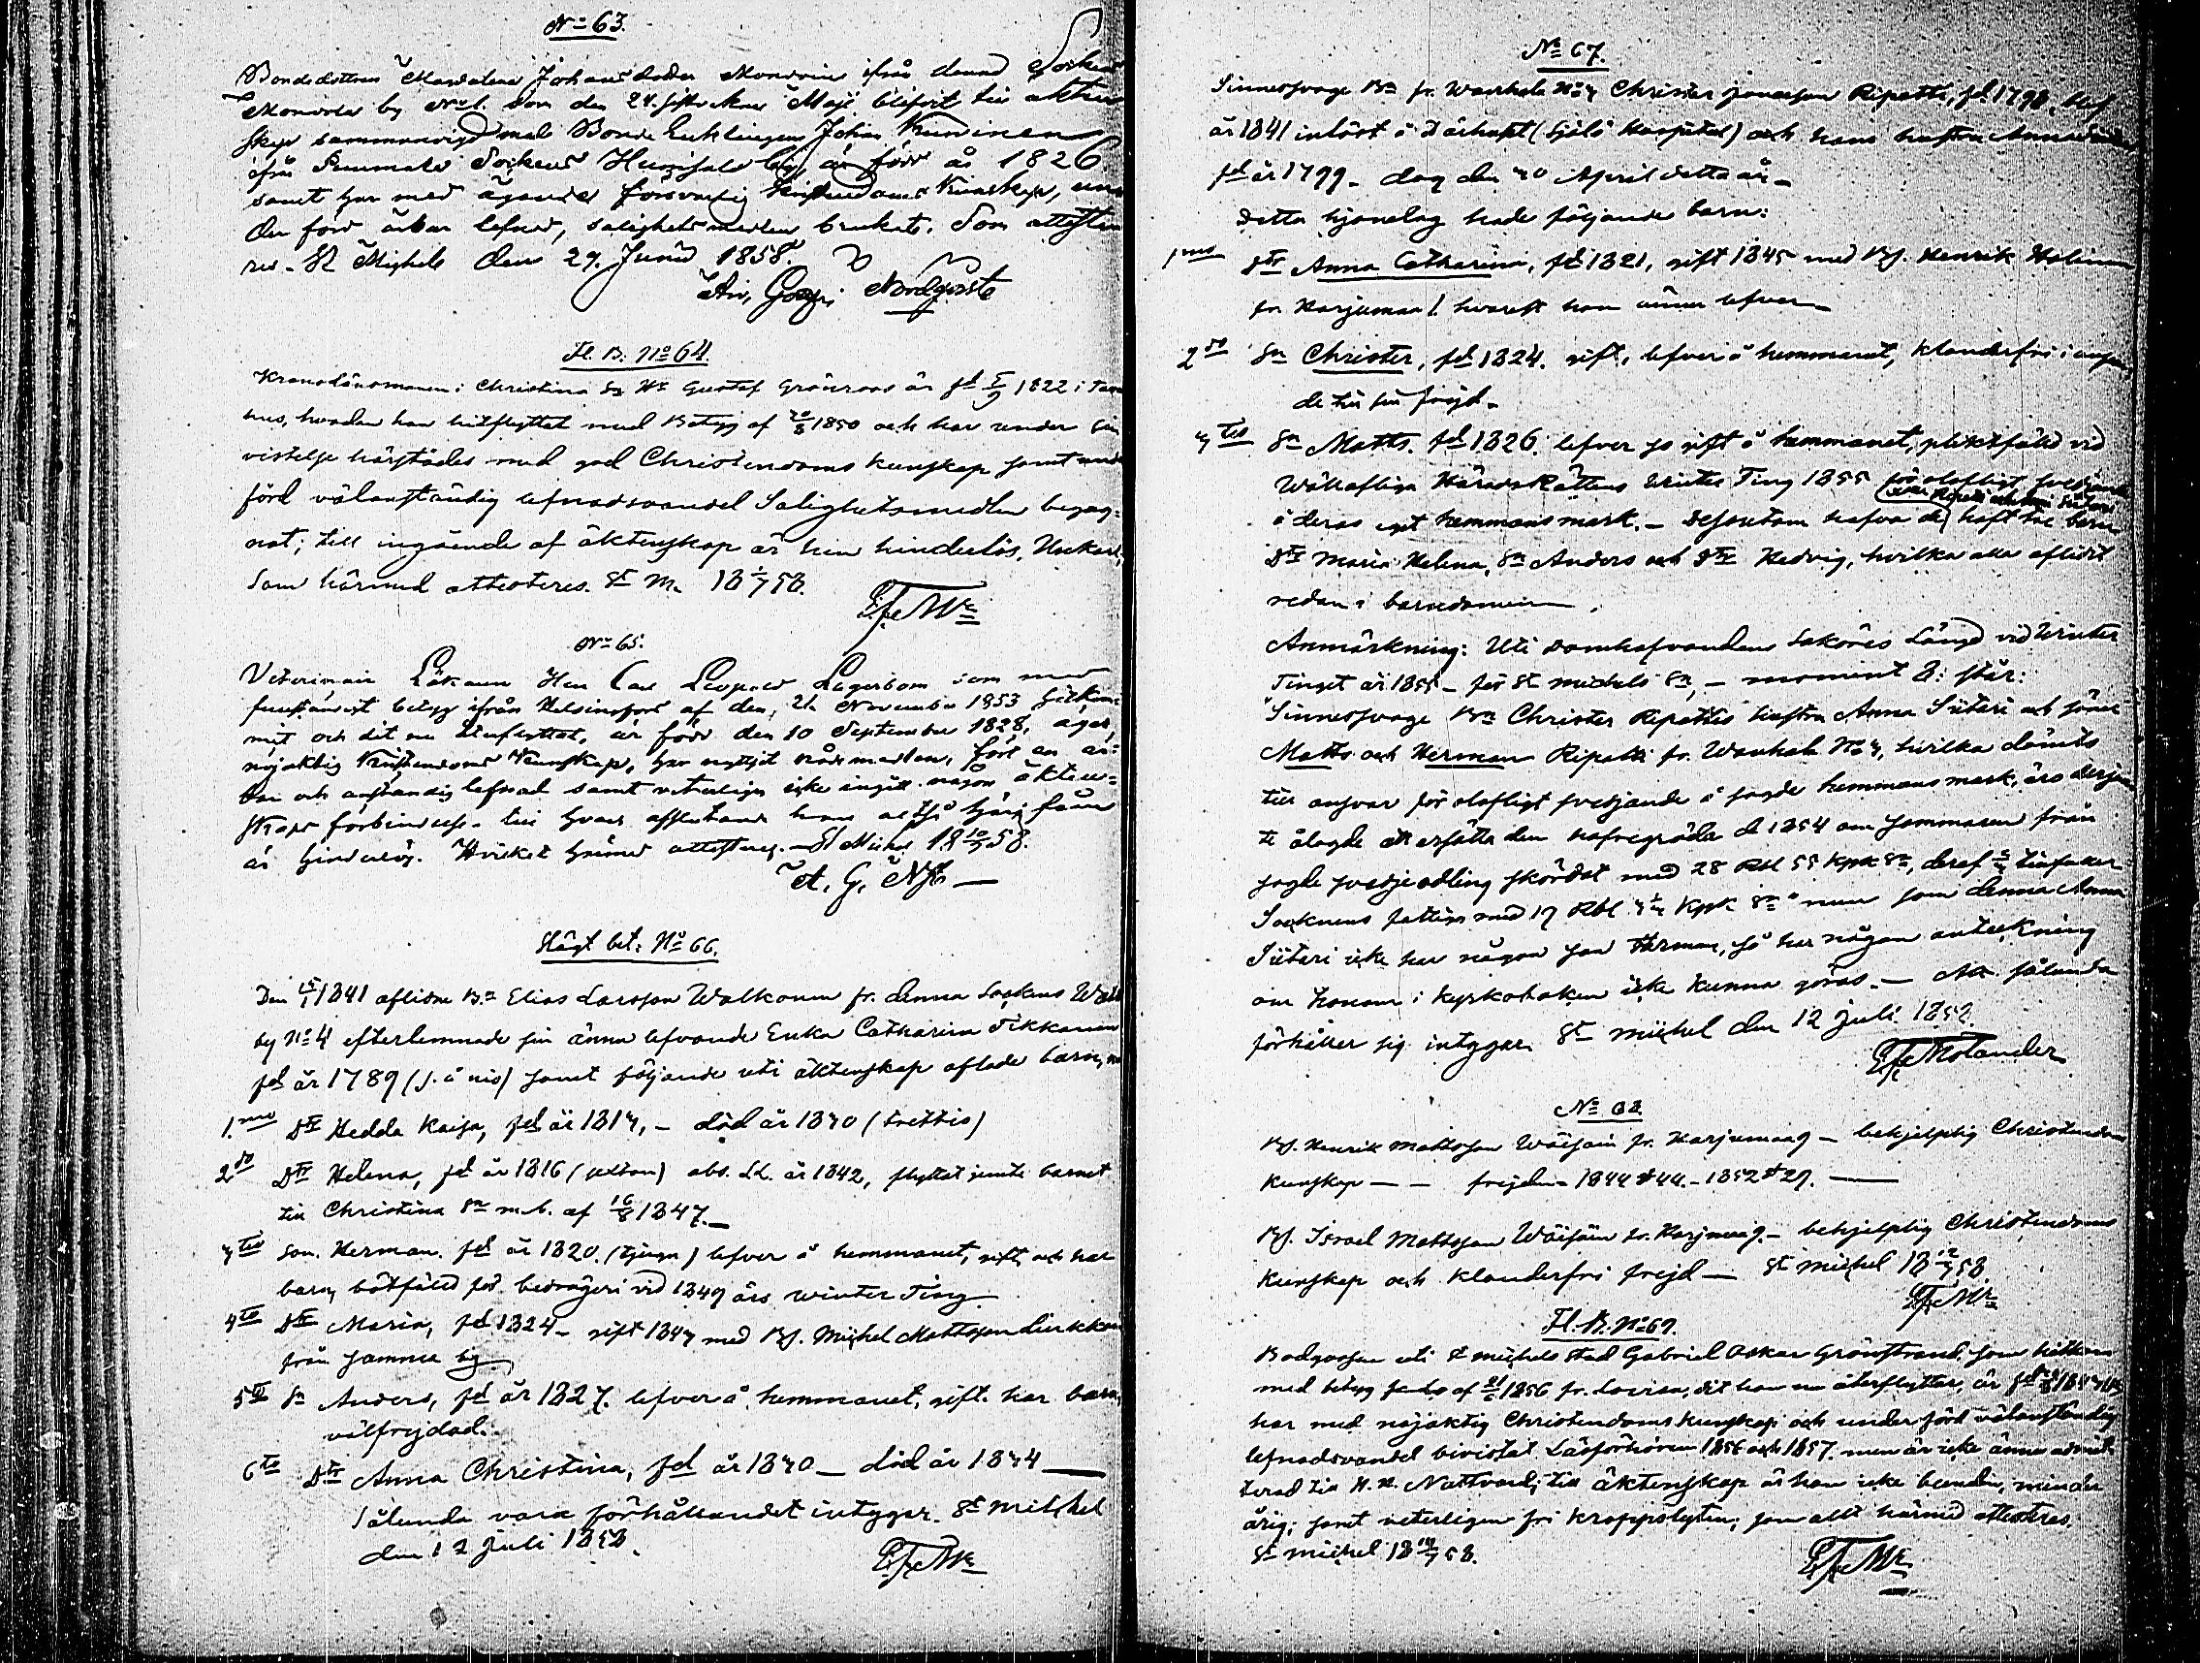 No 63.
Bondedottren Magdalena Johansdotter ifrån denna Socken
by No 1. som den 24. sistvikne Maji blifvit till äkten
skap sammanvigd med Bonde Enklingen Johan Kuminen
ifrån Socken by, är född år 1826
samt har med ägande försvarlig Kristendoms Kunskap, un
der förd ärbar lefnad, salighetsmedlen brukat. Som atteste
ras. St Michels den 29. Junii 1858.
And. Georg. Nordqvist
Fl. B. No 64.
Kronolänsmannen i Christina Sn Hr Gustaf Grönroos är fd 1822 i
hus, hvadan han hitflyttat med Betyg af 1850 och har under sin
vistelse härstädes med god Christendoms kunskap samt und
förd välanständig lefnadsvandel Salighetsmedlen begag-
nat; till ingående af äktenskap är han hinderlös, Hvilket,
som härmed attesteres. St M. 18 1/7 58.
No 65.
Veterinair Läkaren Herr Carl Leopold Lagerbom som med
betyg ifrån Helsingfors af den, 21 November 1853
mit och dit nu utflyttat, är född den 10 September 1828, äger,
nöjaktig Kristendoms Kunskap, har nyttjat nådemedlen, fört en är-
bar och anständig lefnad samt veterligen icke ingått någon äkten-
skaps förbindelse. till hvars afslutande han altså härifrån
är hinderlös. Hvilket härmed attesteras. St Michel 18 10/7 58.
A. G. Nqt
Slägt bet: No 66.
Den 1841 aflidne Bn Elias Larsson Walkonen fr. denna Sockens
by No 4 efterlemnade sin ännu lefvande Enka Catharina Tikkanen
fd år 1789 (j. å nio) samt följande uti äktenskap aflade barn,
1.mo Dtr Hedda Kaisa, fd år 1813, - död år 1830 (trettio)
2do Dtr Helena, fd år 1816 (sexton) abs. Ld. år 1842, flyttat jemte barnet
till Christina Sn m. b. af 16/8 1847.
3tio Son. Herman. fd år 1820. (tjugu) lefver å hemmanet, gift och har
barn, bötfälld för bedrägeri vid 1849 års Winter Ting
4to Dtr Maria, fd 1824 - gift 1843 med Bj. Michel Mattsson
från samma by
5to Sn Anders, fd år 1827. lefver å hemmanet, gift. har barn,
välfrejdad.
6to Dtr Anna Christina, fd år 1830 - död år 1834
Sålunda vara förhållandet intygar. St Michel
den 12 Juli 1858.
No 67.
Sinnessvage Bn fr. Wanhala No 3 Christer Ripatti, fd 1798, blef
år 1841 införd å Dårhuset (Själö Hospital) och hans hustru Anna
fd år 1799 - dog den 30 April detta år -
detta hjonelag hade följande barn:
1mo Dtr Anna Catharina, fd 1821, gift 1845 med Bj. Henrik
fr. Karjumaa 1. hvarest hon ännu lefver
2do Sn Christer, fd 1824. gift, lefver å hemmanet, klanderfri i
de till sin frejd -
3tio Sn Matts. fd 1826. lefver jo gift å hemmanet, pliktfälld vid
Wällofliga HäradsRättens Winter Ting 1855 för olofligt svedjande
å deras eget hemmans mark. - Dessutom hafva de haft tre barn
Dtr Maria Helena, Sn Anders och Dtr Hedvig, hvilka alla aflidit
redan i barndomen.
Anmärkning: Uti domhafvandens Saköres Längd vid Winter
Tinget år 1855 - för St Michels Sn, - moment 8: står:
"Sinnessvage Bn Christer Ripattis hustru Anna Siiteri och söner
Matts och Herman Ripatti fr. Wanhala No 3, hvilka dömts
till ansvar för olofligt svedjande å sagde hemmans mark, äro
te ålagde att ersätta den hafregröda de 1854 om sommaren från
sagde svedjeodling skördat med 28 Rbl 55 Kpk Sr, deraf tillfaller
Socknens fattige med 19 Rbl 3 Kpk Sr" men som denna Anna
Siiteri icke har någon son Herman, så har någon anteckning
om honom i kyrkoboken icke kunna göras. - Att sålunda
förhåller sig intygar. St Michel den 12 Juli 1858.
Molander
No 68.
Bj. Henrik Mattsson Wäisäin fr. Karjumaa 9 - behjelplig Christendoms
Kunskap - - frejden 1844 # 44. - 1852 # 27.
Bj. Israel Mattsson Wäisäin fr. Karjumaa 9. - behjelplig Christendoms
kunskap och klanderfri frejd - St Michel 18 12/7 58.
Fl. B. No 69.
Bodgossen uti St Michels stad Gabriel Oskar Grönstrand, som hitkom
med betyg af 1856 fr. Lovisa, dit han nu återflyttar, är fd
har med nöjaktig Christendoms kunskap och under förd välanständig
lefnadsvandel bivistat Läsförhören 1856 och 1857. men är icke ännu admit-
terad till H. H. Nattvard; till äktenskap är han icke bunden, minder
årig; samt veterligen fri kroppslyten; som allt härmed attesteras.
St Michel 18 14/7 58.